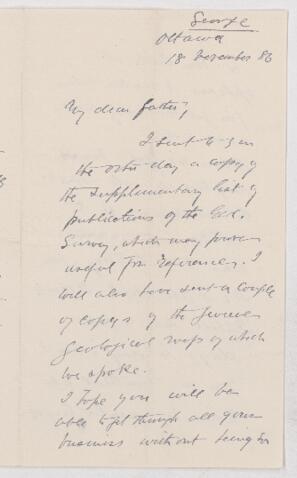 George
Ottawa
18 November 86
My dear father,
I sent to you
the other day a copy of
the supplementary list of
publications of the Geol.
Survey, which may prove
useful for reference. I
will also have sent a couple
of copies of the
Geological maps of which
we spoke.
I hope you will be
able to get through all your
business without being